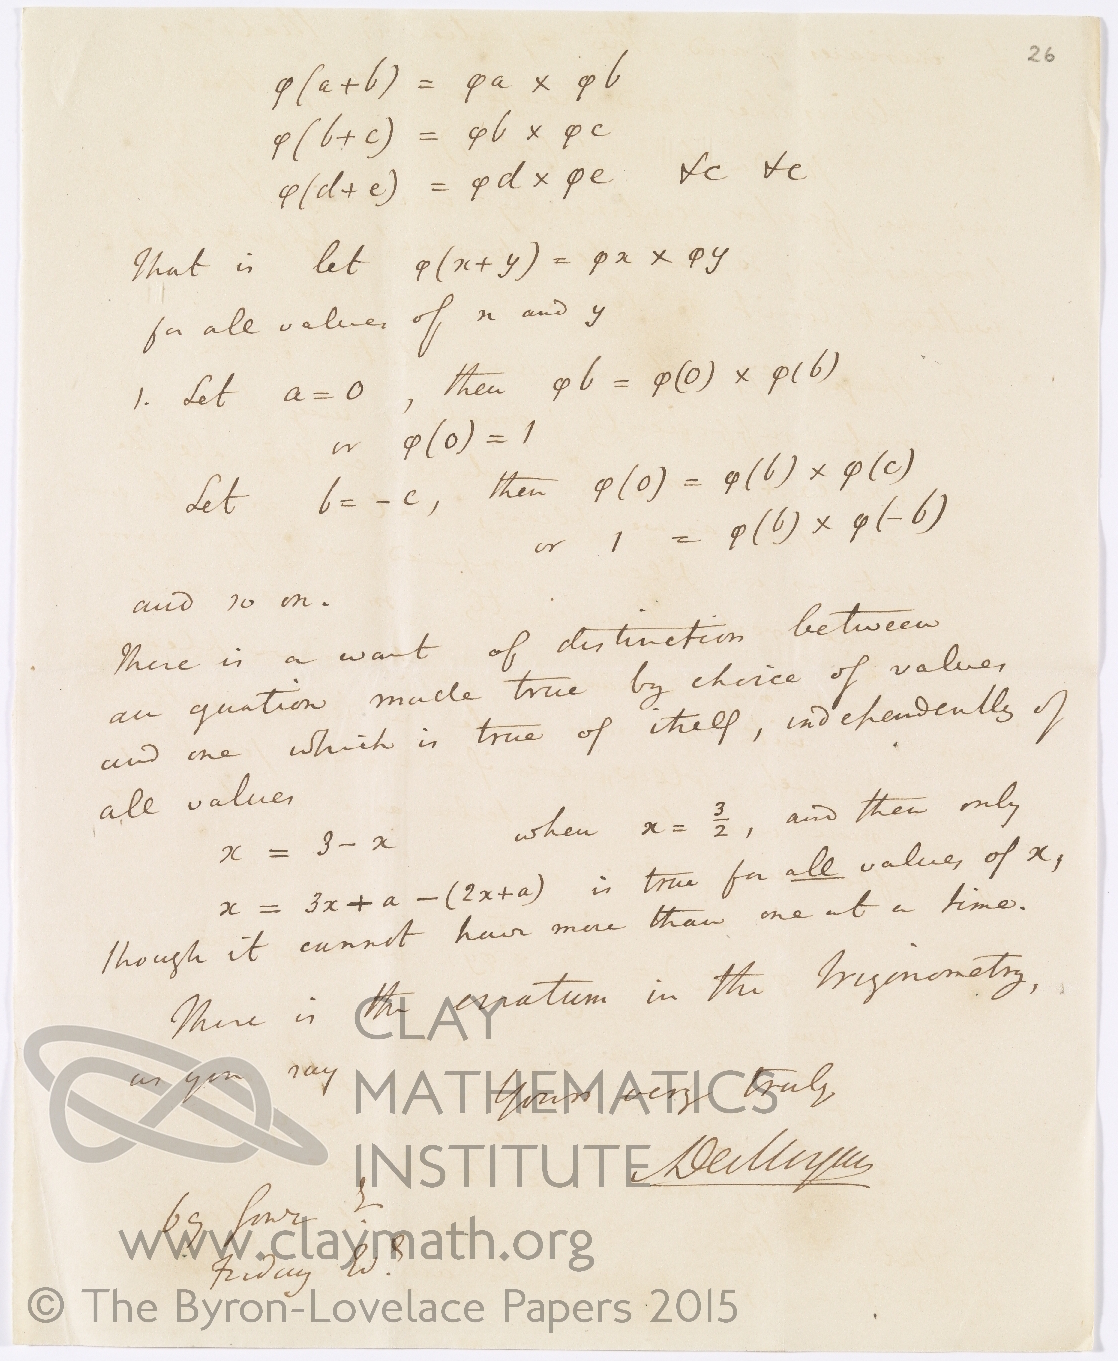 26
φ(a+b) = φa × φb
φ(b+c) = φb × φc
φ(d+e) = φd × φe &c &c
That is let φ(x+y) = φx × φy
for all values of x and y
1. Let a=0, then φb = φ(0) × φ(b)
or φ(0) = 1
Let b=-c, then φ(0) = φ(b) × φ(c)
or 1 = φ(b) × φ(-b)
and so on.
There is a want of distinction between
an equation made true by choice of values
and one which is true of itself, independently of
all values
x = 3-x when x = 3/2, and then only
x = 3x+a-(2x+a) is true for all values of x,
though it cannot have more than one at a time.
There is the erratum in the Trigonometry,
as you say
Yours very truly
ADeMorgan
69 Gower St
Friday Evg
CLAY
MATHEMATICS
INSTITUTE
www.claymath.org
© The Byron-Lovelace Papers 2015